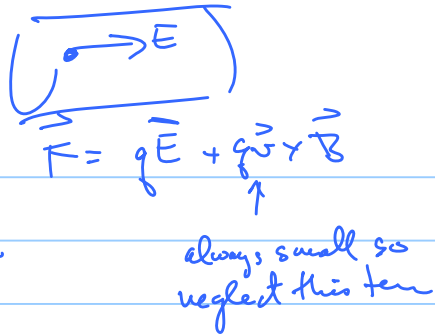 E⃗
F⃗ = qE⃗ + qv⃗ × B⃗
↑
always small so
neglect this term